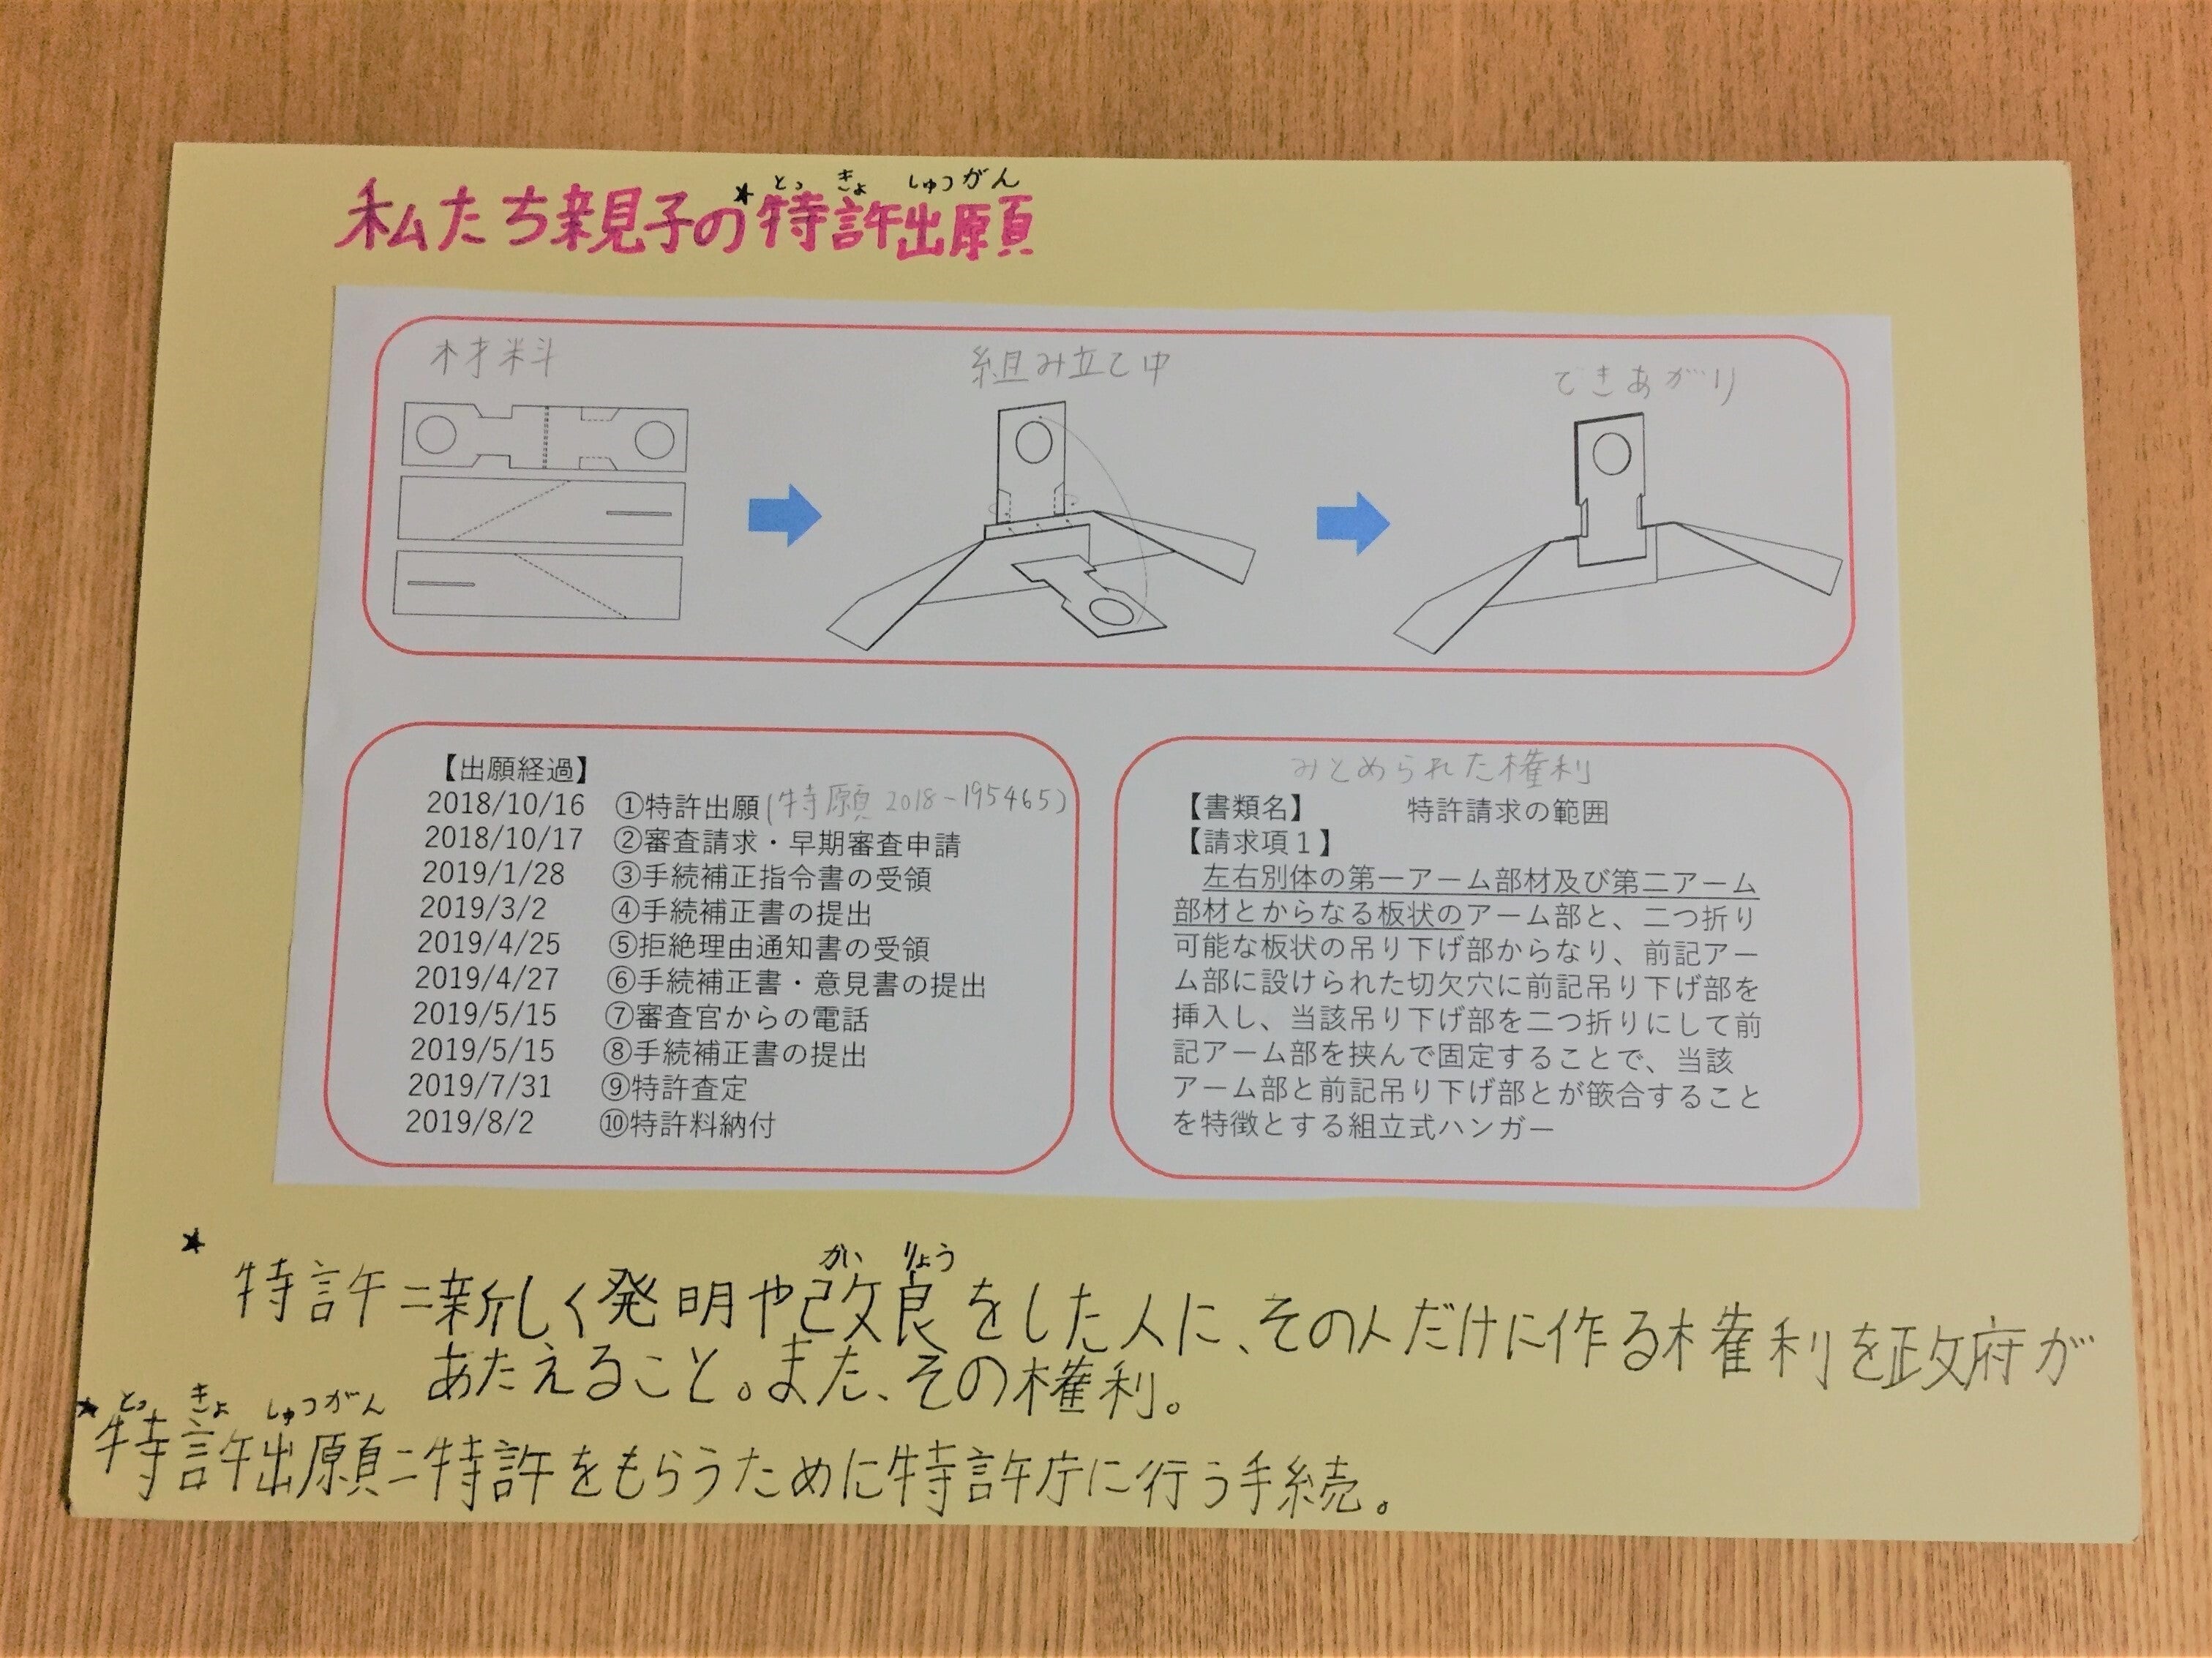 私たち親子の★特許出願
とっ きょ しゅつ がん
材料
組み立て中
できあがり
【出願経過】
2018/10/16 ①特許出願(特願2018-195465)
2018/10/17 ②審査請求・早期審査申請
2019/1/28 ③手続補正指令書の受領
2019/3/2 ④手続補正書の提出
2019/4/25 ⑤拒絶理由通知書の受領
2019/4/27 ⑥手続補正書・意見書の提出
2019/5/15 ⑦審査官からの電話
2019/5/15 ⑧手続補正書の提出
2019/7/31 ⑨特許査定
2019/8/2 ⑩特許料納付
みとめられた権利
【書類名】 特許請求の範囲
【請求項1】
左右別体の第一アーム部材及び第二アーム
部材とからなる板状のアーム部と、二つ折り
可能な板状の吊り下げ部からなり、前記アー
ム部に設けられた切欠穴に前記吊り下げ部を
挿入し、当該吊り下げ部を二つ折りにして前
記アーム部を挟んで固定することで、当該
アーム部と前記吊り下げ部とが篏合すること
を特徴とする組立式ハンガー
かい りょう
★特許=新しく発明や改良をした人に、その人だけに作る権利を政府が
あたえること。また、その権利。
とっ きょ しゅつ がん
★特許出願=特許をもらうために特許庁に行う手続。